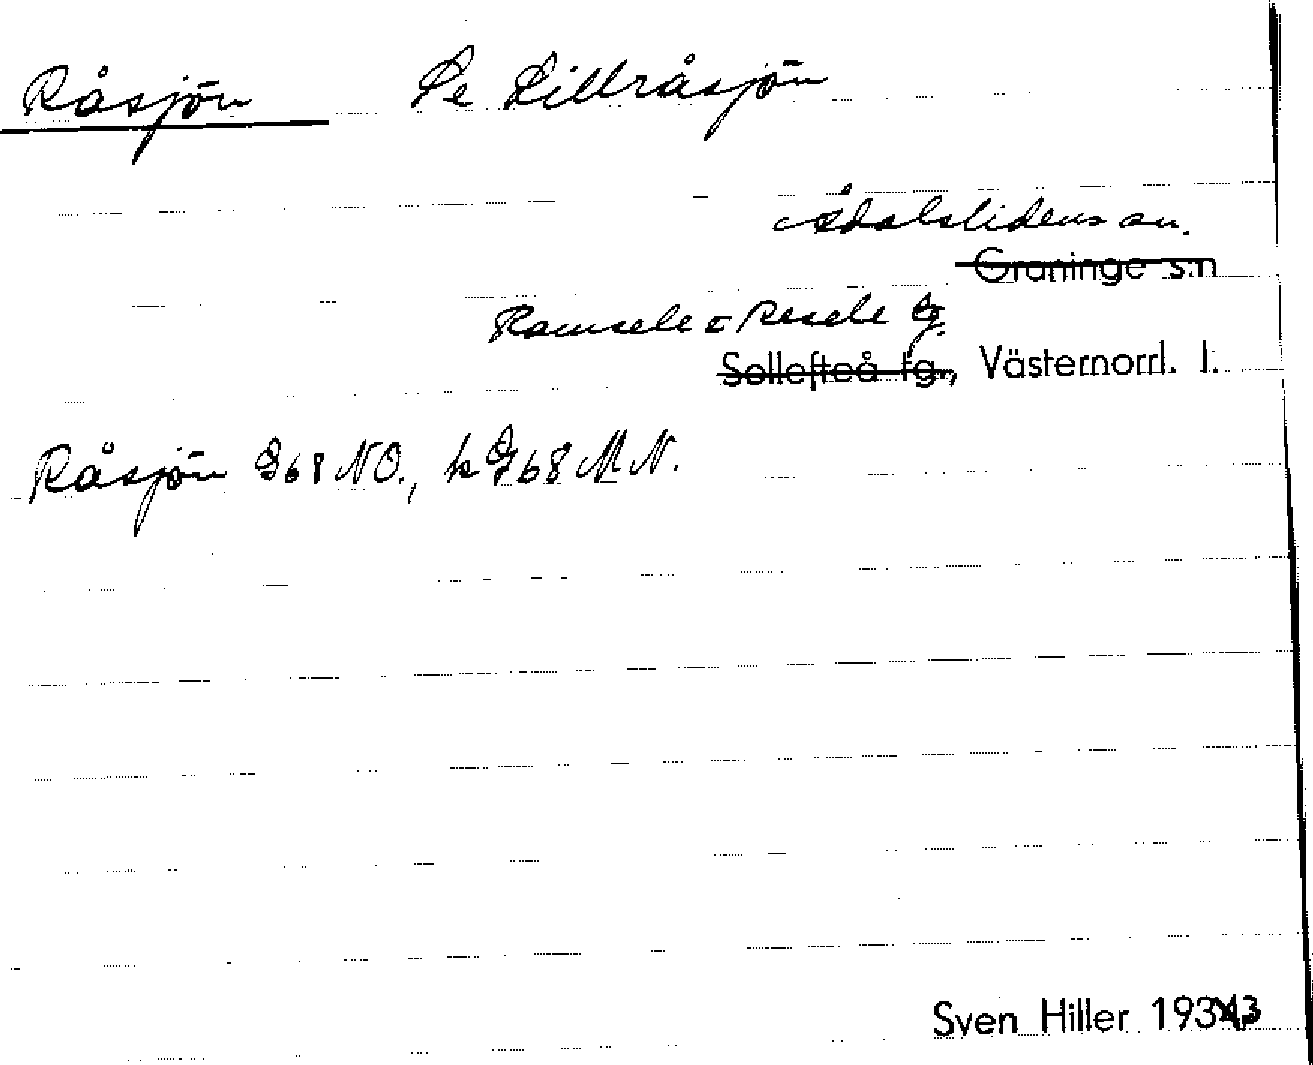 Råsjön Se Lillråsjön
Ådalslidens sn.
Graninge s:n
Ramsele o Resele tg.
Sollefteå tg., Västernorrl. l.
Råsjön 968 NO., k 968 M N.
Sven Hiller 1933